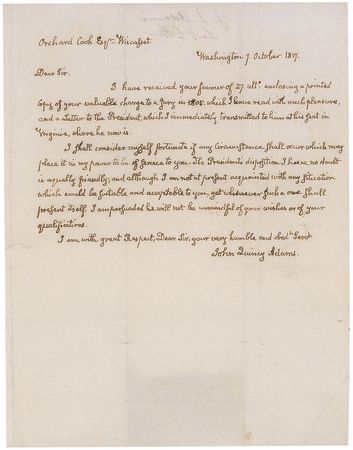 Orchard Cook Esqr. Wiscasset
Washington 7. October 1817.
Dear Sir.
I have received your favour of 27. ulto. enclosing a printed
Copy of your valuable charge to a Jury in 1805. which I have read with much pleasure,
and a Letter to the President, which I immediately transmitted to him at his seat in
Virginia, where he now is.
I shall consider myself fortunate if any Circumstance shall occur which may
place it in my power to be of service to you. The President's disposition I have no doubt
is equally friendly; and although I am not at present acquainted with any situation
which would be suitable and acceptable to you, yet whenever such a one shall
present itself, I am persuaded he will not be unmindful of your wishes or of your
qualifications.
I am with great Respect, Dear Sir, your very humble and obedt. Servt.
John Quincy Adams.